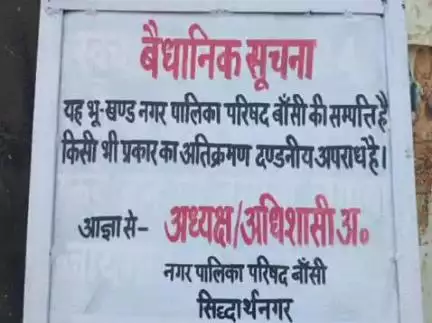 बैधानिक सूचना
यह भू-खण्ड नगर पालिका परिषद बाँसी की सम्पत्ति है
किसी भी प्रकार का अतिक्रमण दण्डनीय अपराध है।
आज्ञा से- अध्यक्ष/अधिशासी अ॰
नगर पालिका परिषद बाँसी
सिद्धार्थनगर